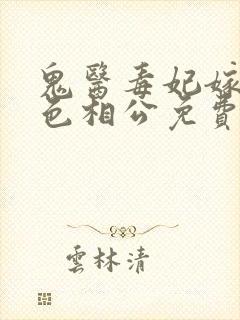 鬼醫毒妃嫁
色相公免費
雲林清